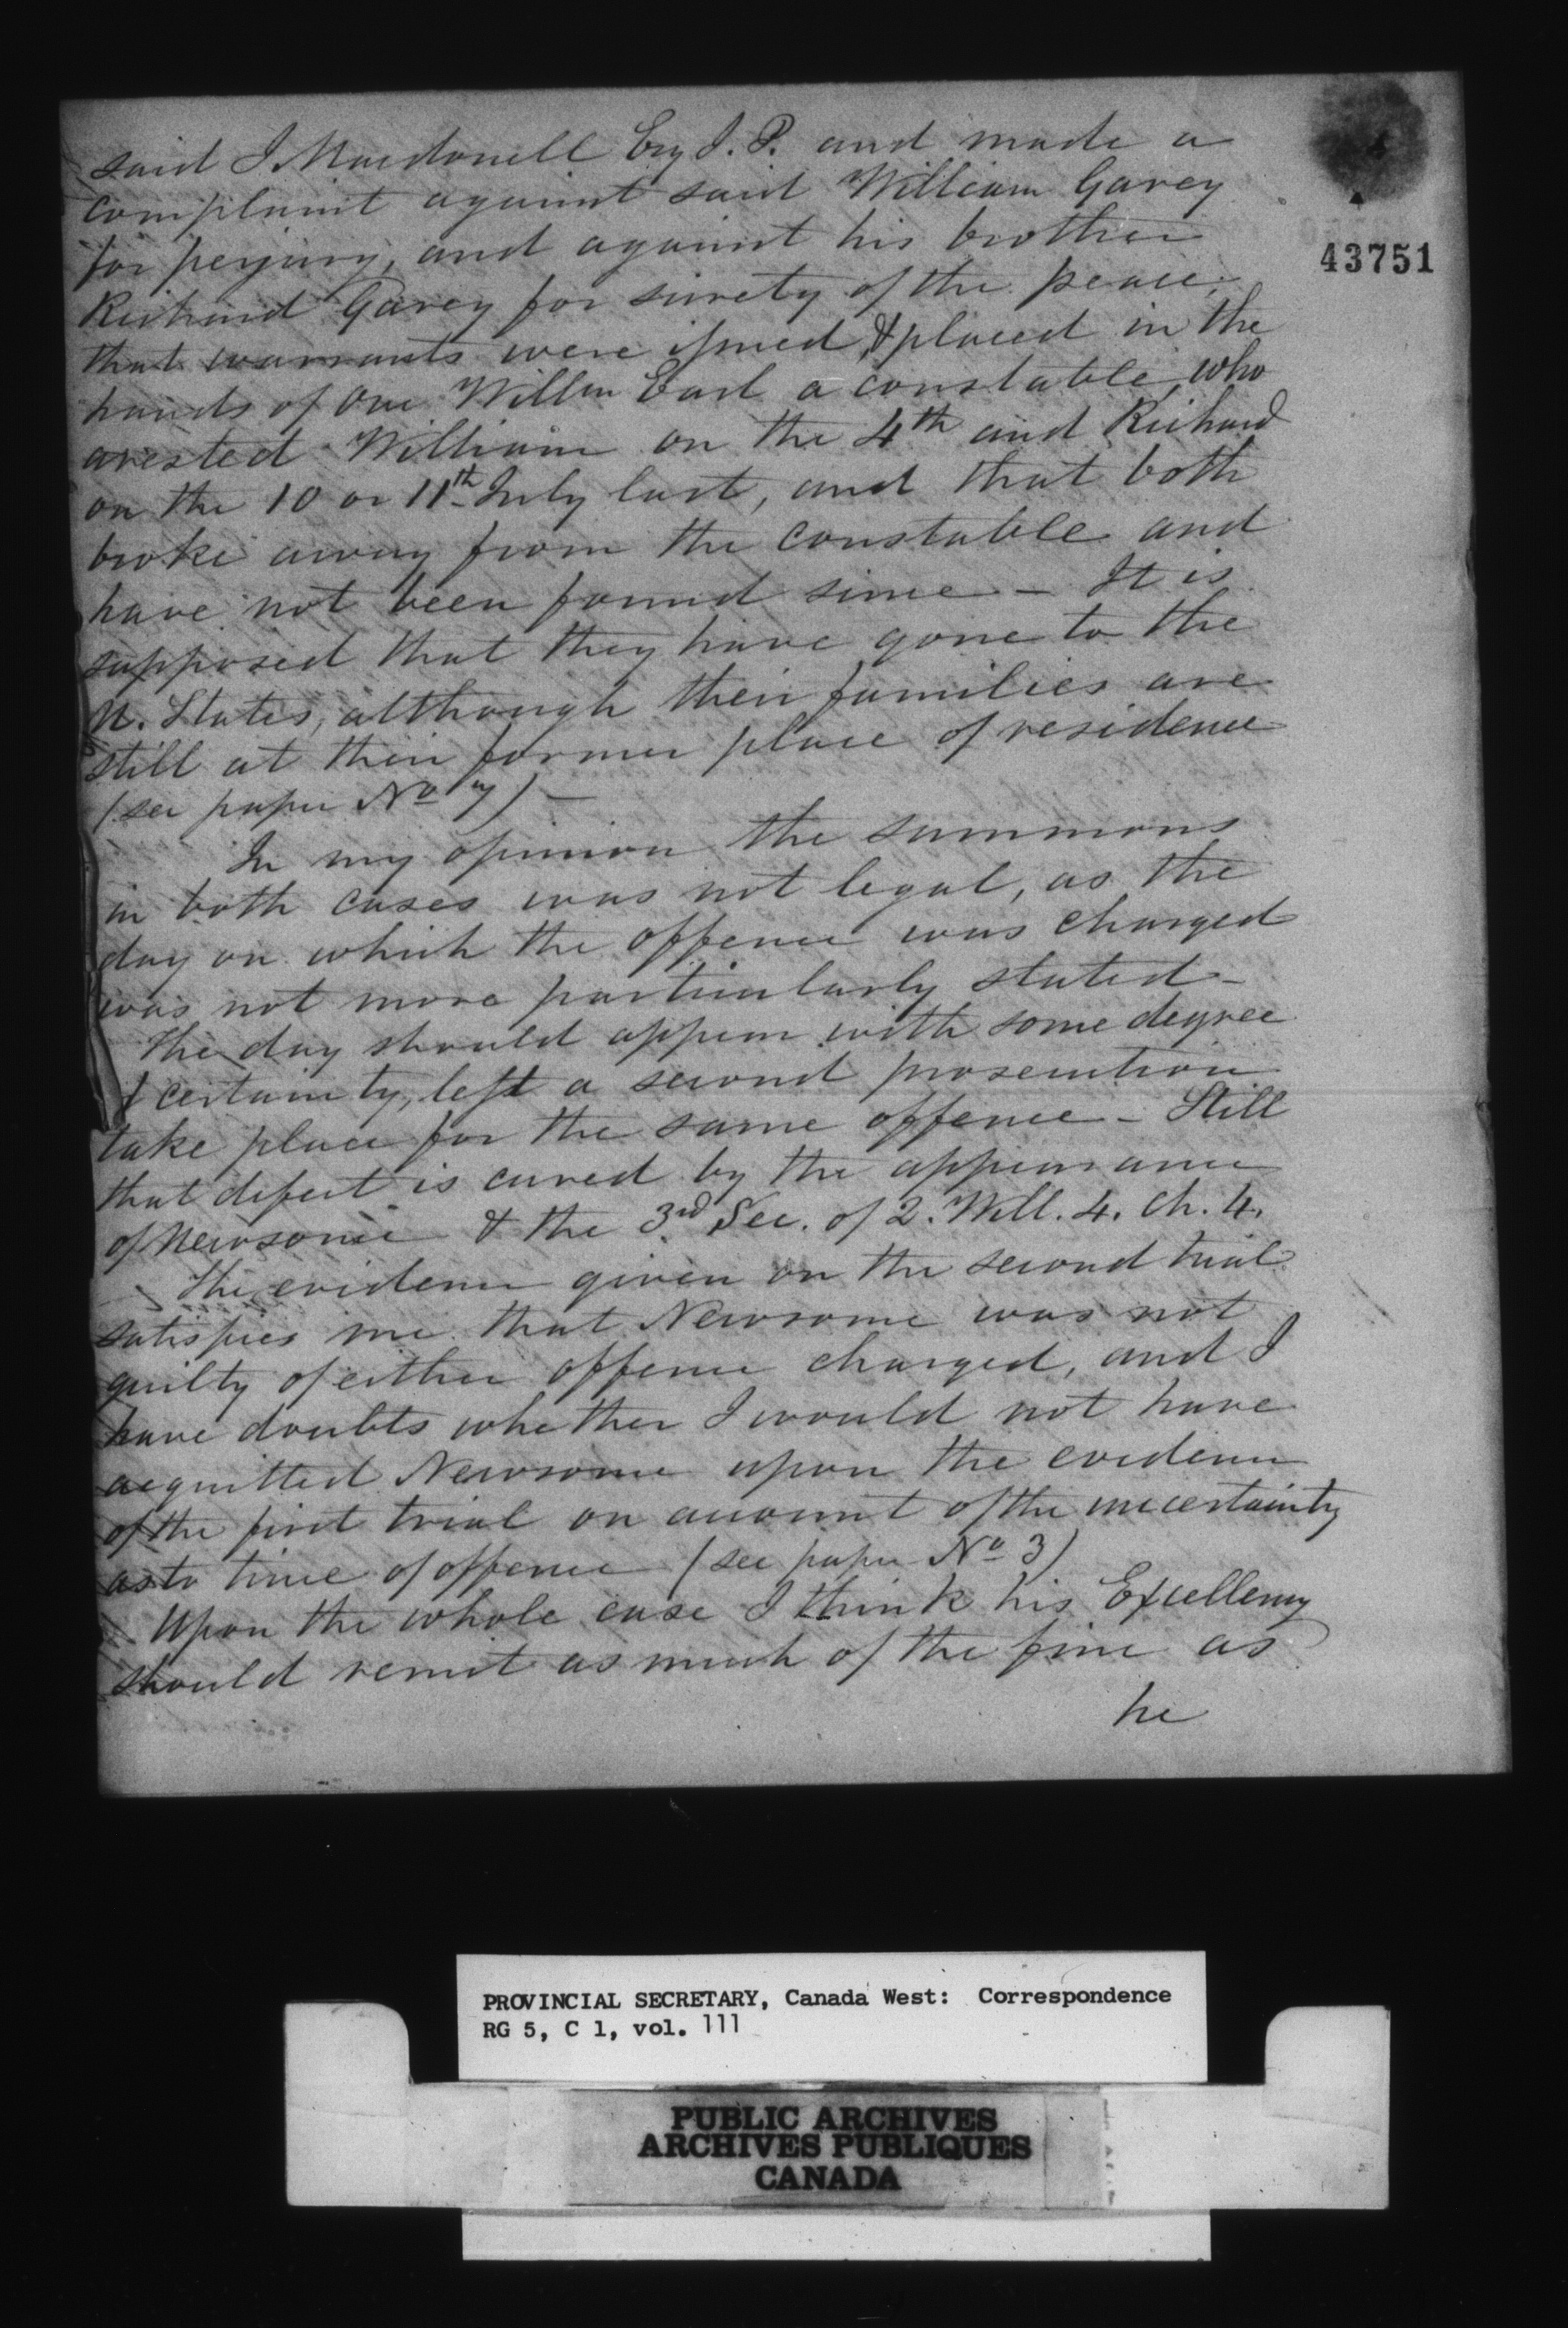 said J. Macdonell Esq J. P. and made a
complaint against said William Garey
for perjury, and against his brother
Richard Garey for surety of the peace,
that warrants were issued, & placed in the
hands of one Willm Earl a constable, who
arested William on the 4th and Richard
on the 10 or 11th July last, and that both
broke away from the constable and
have not been found since – It is
supposed that they have gone to the
U. States, although their families are
still at their former place of residence
(see paper No 7) –
In my opinion the summons
in both cases was not legal, as the
day on which the offence was charged
was not more particularly stated –
The day should appear with some degree
of certainty, lest a second prosecution
take place for the same offence – Still
that defect is cured by the appearance
of Newsome & the 3rd Sec. of 2. Will. 4. Ch. 4.
The evidence given on the second trial
satisfies me that Newsome was not
guilty of either offence charged, and I
have doubts whether I would not have
acquitted Newsome upon the evidence
of the first trial on account of the uncertainty
as to time of offence (see paper No 3)
Upon the whole case I think his Excellency
should remit as much of the fine as
he
43751
PROVINCIAL SECRETARY, Canada West: Correspondence
RG 5, C 1, vol. 111
PUBLIC ARCHIVES
ARCHIVES PUBLIQUES
CANADA